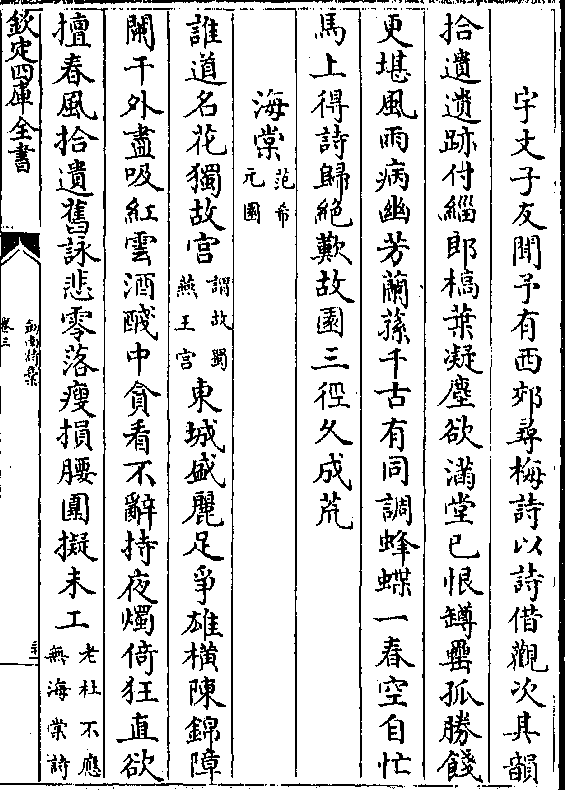 宇文子友聞予有西郊尋梅詩以詩借觀次其韻
拾遺遺跡付緇郎槁葉凝塵欲滿堂已恨罇罍孤勝餞
更堪風雨病幽芳蘭蓀千古有同調蜂蝶一春空自忙
馬上得詩歸絶歎故園三徑久成荒
海棠范希元園
誰道名花獨故宮謂故蜀燕王宮東城盛麗足爭雄橫陳錦障
闌干外盡吸紅雲酒醆中貪看不辭持夜燭倚狂直欲
擅春風拾遺舊詠悲零落瘦損腰圍擬未工老杜不應無海棠詩
欽定四庫全書
劍南詩稾
卷三